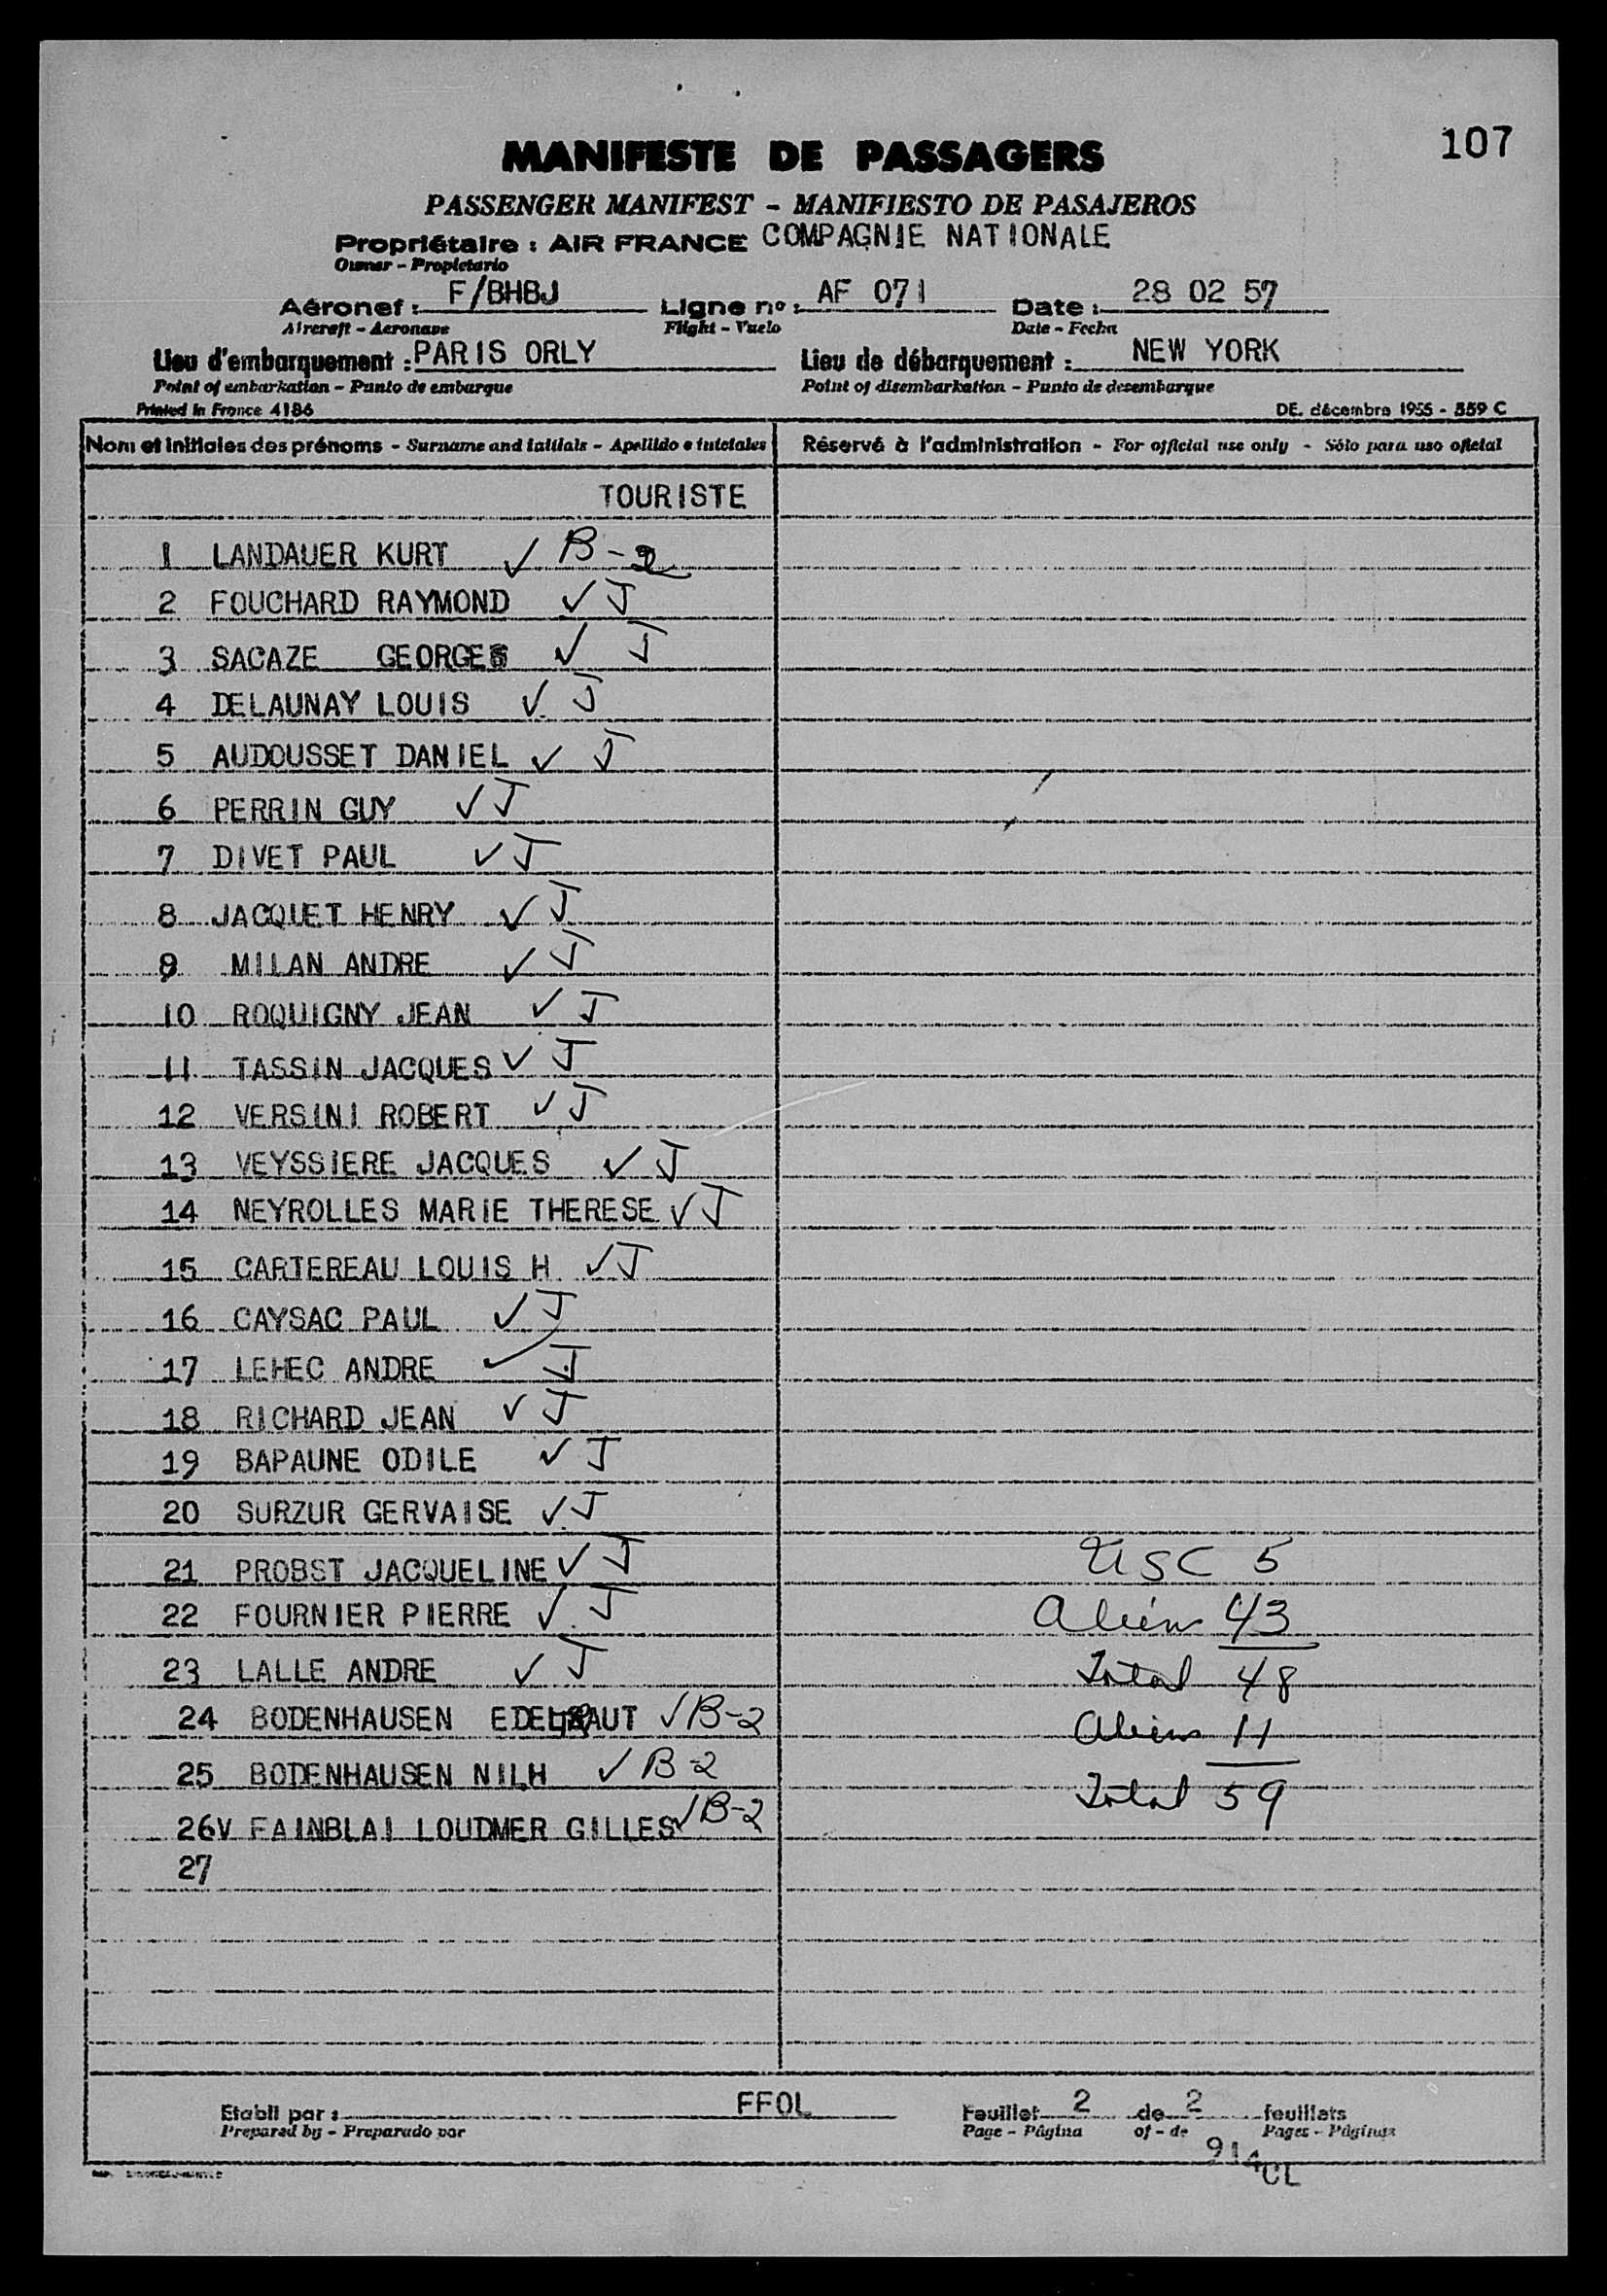 107
MANIFESTE DE PASSAGERS
PASSENGER MANIFEST - MANIFIESTO DE PASAJEROS
Propriétaire : AIR FRANCE COMPAGNIE NATIONALE
Owner - Propietario
Aéronef : F/BHBJ Ligne no : AF 071 Date : 28 02 57
Aircraft - Aeronave Flight - Vuelo Date - Fecha
Lieu d'embarquement : PARIS ORLY Lieu de débarquement : NEW YORK
Point of embarkation - Punto de embarque Point of disembarkation - Punto de desembarque
Printed in France 4186 DE. décembre 1955 - 559 C
Nom et initiales des prénoms - Surname and initials - Apellido e iniciales Réservé à l'administration - For official use only - Sólo para uso oficial
TOURISTE
1 LANDAUER KURT ✓ B-2
2 FOUCHARD RAYMOND ✓ J
3 SACAZE GEORGES ✓ J
4 DELAUNAY LOUIS ✓ J
5 AUDOUSSET DANIEL ✓ J
6 PERRIN GUY ✓ J
7 DIVET PAUL ✓ J
8 JACQUET HENRY ✓ J
9 MILAN ANDRE ✓ J
10 ROQUIGNY JEAN ✓ J
11 TASSIN JACQUES ✓ J
12 VERSINI ROBERT ✓ J
13 VEYSSIERE JACQUES ✓ J
14 NEYROLLES MARIE THERESE ✓ J
15 CARTEREAU LOUIS H ✓ J
16 CAYSAC PAUL ✓ J
17 LEHEC ANDRE ✓ J
18 RICHARD JEAN ✓ J
19 BAPAUNE ODILE ✓ J
20 SURZUR GERVAISE ✓ J
21 PROBST JACQUELINE ✓ J USC 5
22 FOURNIER PIERRE ✓ J Aliens 43
23 LALLE ANDRE ✓ J Total 48
24 BODENHAUSEN ✓ B-2 Aliens 11
25 BODENHAUSEN NILH ✓ B-2 Total 59
26V FAINBLAI LOUDMER GILLES ✓ B-2
27
Etabli par : FFOL Feuillet 2 de 2 feuillets
Prepared by - Preparado por Page - Página of - de Pages - Páginas
914CL